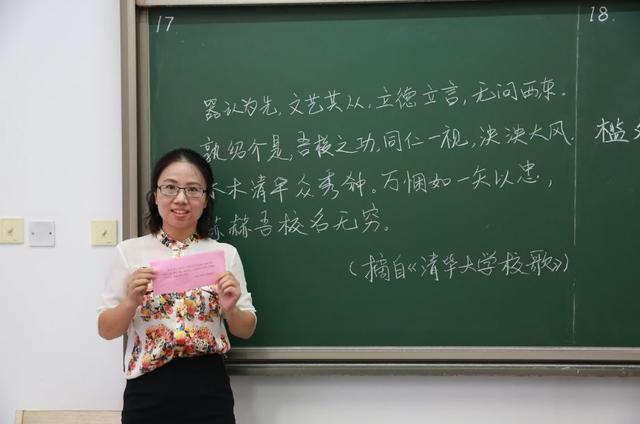 17
18.
器识为先,文艺其从,立德立言,无问西东。
孰绍介是,吾校之功,同仁一视,泱泱大风。
木清华众秀钟。万悃如一矢以忠,
赫吾校名无穷。
(摘自《清华大学校歌》)
槛